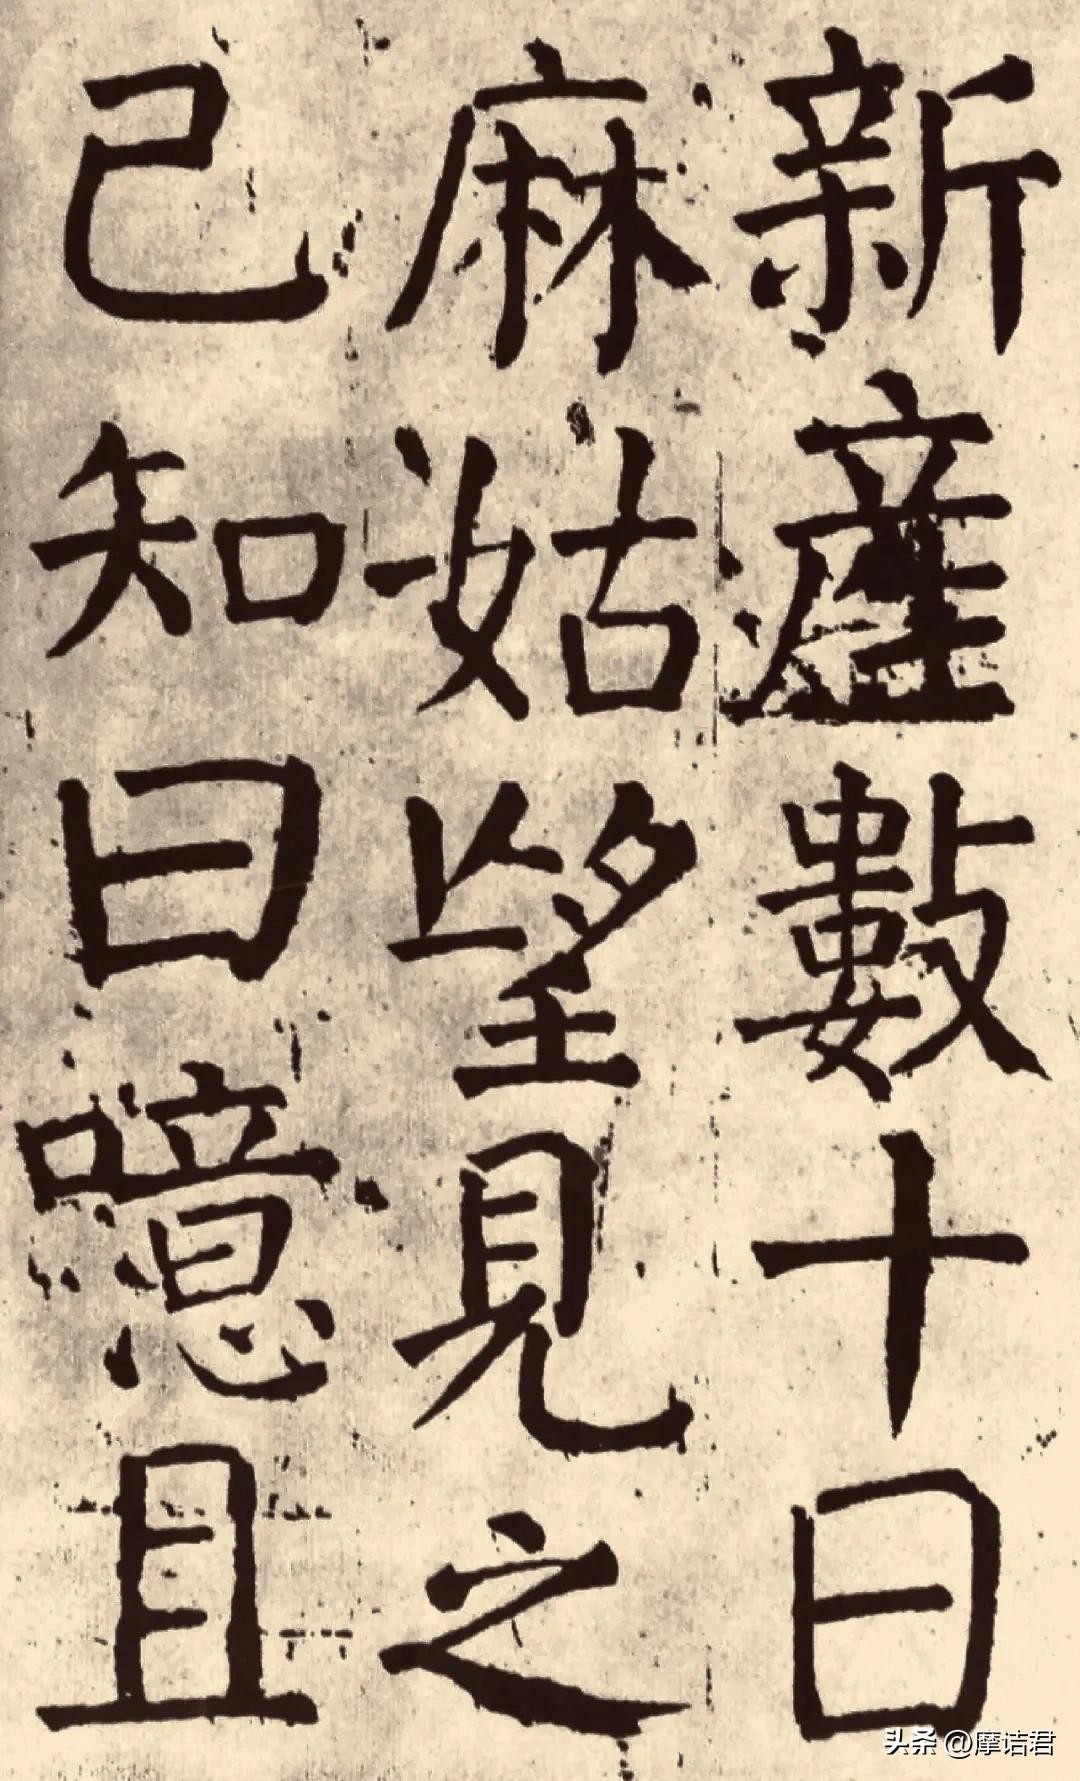 新產數十日
麻姑望見之
已知曰噫且
头条 @摩诘君